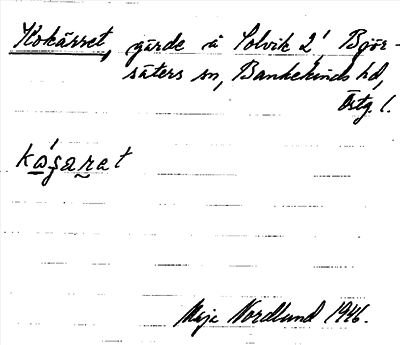 Kokärret, gärde å Solvik 2, Björ-
säters sn, Bankekinds hd,
Östg. l.
kógarat
Maja Nordlund 1946.